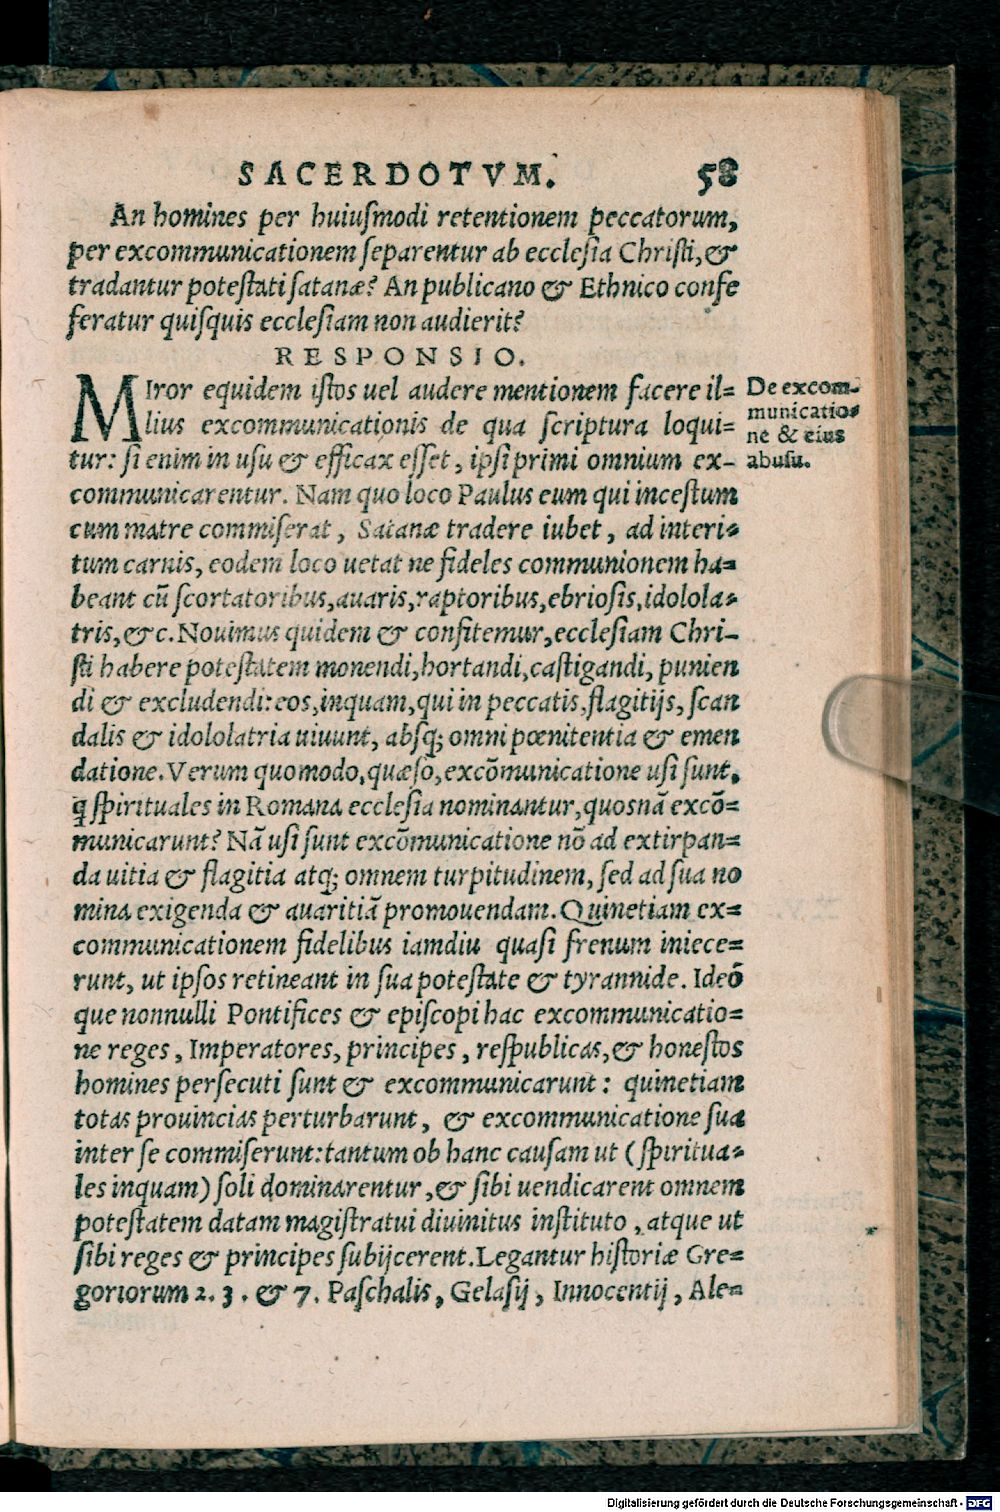 SACERDOTVM. 58
An homines per huiuſmodi retentionem peccatorum,
per excommunicationem ſeparentur ab eccleſia Chriſti, &
tradantur poteſtati ſatanæ? An publicano & Ethnico confe
feratur quiſquis eccleſiam non audierit?
RESPONSIO.
MIror equidem iſtos uel audere mentionem facere il=
lius excommunicationis de qua ſcriptura loqui=
tur: ſi enim in uſu & efficax eſſet, ipſi primi omnium ex-
communicarentur. Nam quo loco Paulus eum qui inceſtum
cum matre commiſerat, Satanæ tradere iubet, ad interi=
tum carnis, eodem loco uetat ne fideles communionem ha=
beant cũ ſcortatoribus, auaris, raptoribus, ebrioſis, idolola=
tris, &c. Nouimus quidem & confitemur, eccleſiam Chri-
ſti habere poteſtatem monendi, hortandi, caſtigandi, punien
di & excludendi: eos, inquam, qui in peccatis, flagitijs, ſcan
dalis & idololatria uiuunt, abſq; omni pœnitentia & emen
datione. Verum quomodo, quæſo, excõmunicatione uſi ſunt,
q̃ ſpirituales in Romana eccleſia nominantur, quosnã excõ=
municarunt? Nã uſi ſunt excõmunicatione nõ ad extirpan=
da uitia & flagitia atq; omnem turpitudinem, ſed ad ſua no
mina exigenda & auaritiã promouendam. Quinetiam ex=
communicationem fidelibus iamdiu quaſi frenum iniece=
runt, ut ipſos retineant in ſua poteſtate & tyrannide. Ideõ
que nonnulli Pontifices & epiſcopi hac excommunicatio=
ne reges, Imperatores, principes, reſpublicas, & honeſtos
homines perſecuti ſunt & excommunicarunt: quinetiam
totas prouincias perturbarunt, & excommunicatione ſua
inter ſe commiſerunt: tantum ob hanc cauſam ut (ſpiritua=
les inquam) ſoli dominarentur, & ſibi uendicarent omnem
poteſtatem datam magiſtratui diuinitus inſtituto, atque ut
ſibi reges & principes ſubijcerent. Legantur hiſtoriæ Gre=
goriorum 2. 3. & 7. Paſchalis, Gelaſij, Innocentij, Ale=
De excom-
municatio=
ne & eius
abuſu.
Digitalisierung gefördert durch die Deutsche Forschungsgemeinschaft - DFG